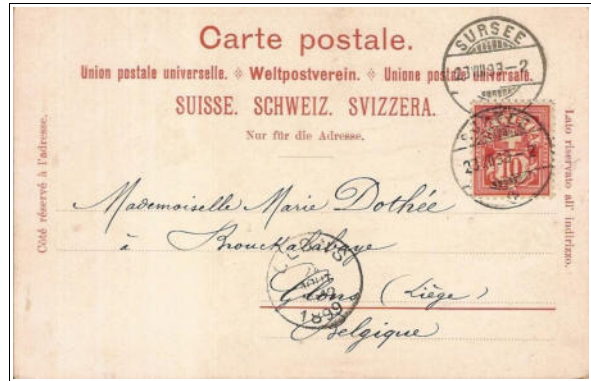 Carte postale.
Union postale universelle. Weltpostverein. Unione postale universale.
SUISSE. SCHWEIZ. SVIZZERA.
Nur für die Adresse.
Côté réservé à l'adresse.
Lato riservato all' indirizzo.
SURSEE
SURSEE
10
Mademoiselle Marie Dothée
à
Glons (Liège)
Belgique
1899